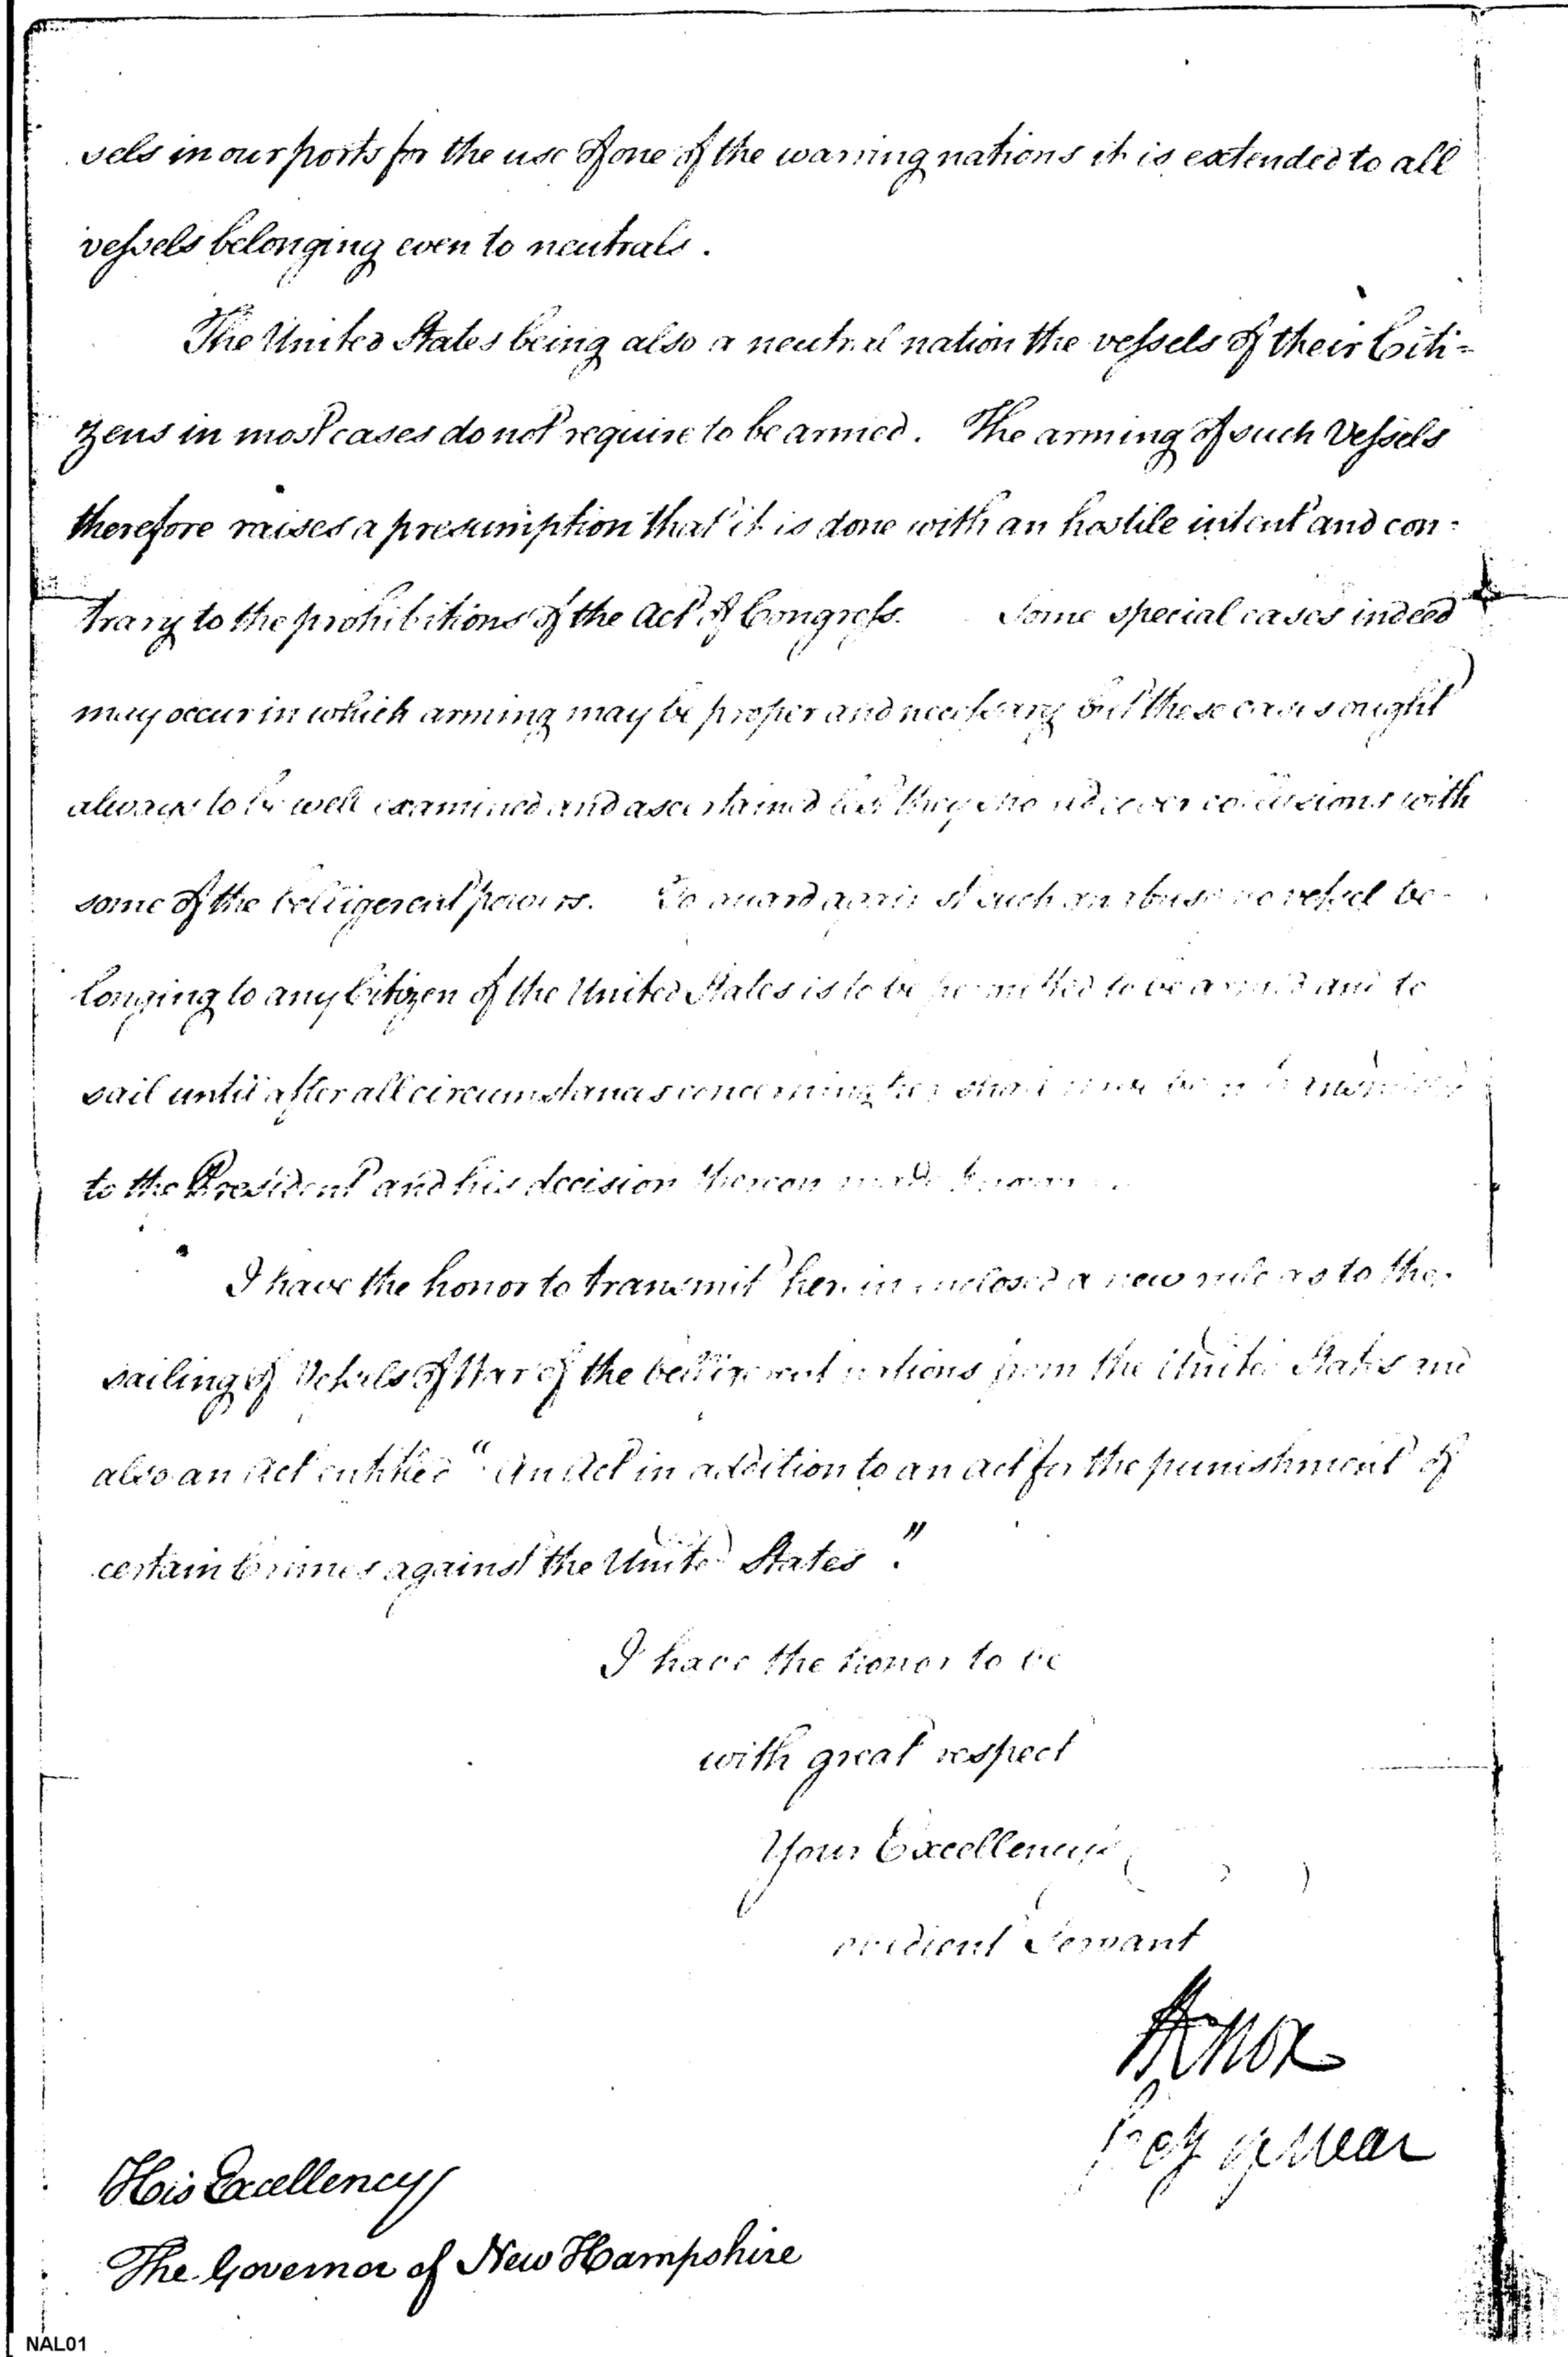 sels in our ports for the use of one of the warring nations it is extended to all
vessels belonging even to neutrals.
The United States being also a neutral nation the vessels of their Citi=
zens in most cases do not require to be armed. The arming of such Vessels
therefore raises a presumption that it is done with an hostile intent and con=
trary to the prohibitions of the Act of Congress. Some special cases indeed
may occur in which arming may be proper and necessary but these cases ought
always to be well examined and ascertained lest they should cover collusions with
some of the belligerent powers. To guard against such an abuse no vessel be-
longing to any Citizen of the United States is to be permitted to be armed and to
sail until after all circumstances concerning her shall have been transmitted
to the President and his decision thereon made known.
I have the honor to transmit herein inclosed a new rule as to the
sailing of Vessels of War of the belligerent nations from the United States and
also an Act entitled "An Act in addition to an act for the punishment of
certain Crimes against the United States."
I have the honor to be
with great respect
Your Excellency's
obedient Servant
HKnox
Secy of war
His Excellency
The Governor of New Hampshire
NAL01